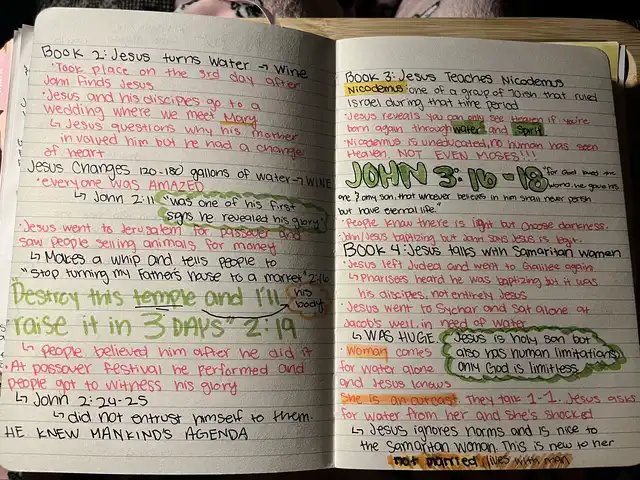 Book 2: Jesus turns water → wine
·Took place on the 3rd day after
John finds Jesus
·Jesus and his discipes go to a
wedding where we meet Mary
↳ Jesus questions why his mother
involved him but he had a change
of heart
Jesus Changes 120-180 gallons of water → WINE
·everyone was AMAZED
↳ John 2:11 "was one of his first
signs he revealed his glory"
·Jesus went to Jerusalem for passover and
saw people selling animals for money
↳ Makes a whip and tells people to
"stop turning my Father's house to a market" 2:16
Destroy this temple and I'll his body
raise it in 3 DAYS" 2:19
↳ people believed him after he did it
·At passover festival he performed and
people got to witness his glory
↳ John 2:24-25
↳ did not entrust himself to them.
HE KNEW MANKIND'S AGENDA
Book 3: Jesus Teaches Nicodemus
Nicodemus: one of a group of 70ish that ruled
Israel during that time period
·Jesus reveals you can only see Heaven if you're
born again through water and spirit
·Nicodemus is uneducated, no human has seen
Heaven, NOT EVEN MOSES!!!
JOHN 3:16-18 "for God loved the
world, he gave his
one & only son, that whoever believes in him shall never perish
but have eternal life."
·People know there is light but choose darkness.
·John/Jesus baptizing but John says Jesus is legit.
BOOK 4: Jesus talks with Samaritan woman
·Jesus left Judea and went to Galilee again
↳ Pharisees heard he was baptizing but it was
his discipes, not entirely Jesus
·Jesus went to Sychar and sat alone at
Jacob's well, in need of water
↳ WAS HUGE. Jesus is holy son but
also has human limitations,
only God is limitless
·Woman comes
for water alone
and Jesus knows
She is an outcast. They talk 1-1. Jesus asks
for water from her and she's shocked
↳ Jesus ignores norms and is nice to
the Samaritan Woman. This is new to her
not married, lives with man